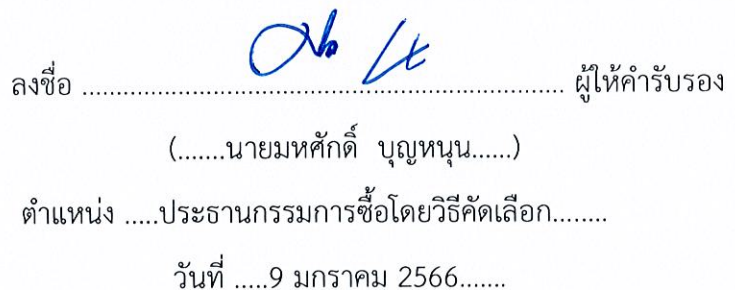 ลงชื่อ ........................................................................ ผู้ให้คำรับรอง
(.......นายมหศักดิ์ บุญหนุน......)
ตำแหน่ง .....ประธานกรรมการซื้อโดยวิธีคัดเลือก........
วันที่ .....9 มกราคม 2566.......